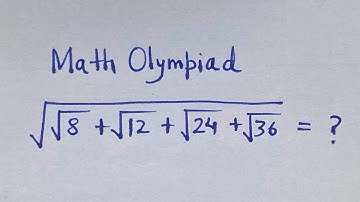 Math Olympiad
√(√8 + √12 + √24 + √36) = ?